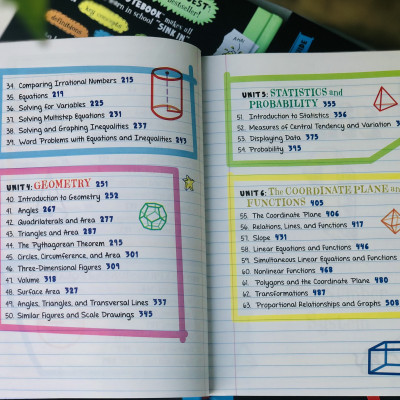 BEST
bestseller!
definitions
key concepts
NOTEBOOK" makes all
own in school "SINK IN"
34. Comparing Irrational Numbers 215
35. Equations 219
36. Solving for Variables 225
37. Solving Multistep Equations 231
38. Solving and Graphing Inequalities 237
39. Word Problems with Equations and Inequalities 243
UNIT 4: GEOMETRY 251
40. Introduction to Geometry 252
41. Angles 267
42. Quadrilaterals and Area 277
43. Triangles and Area 287
44. The Pythagorean Theorem 295
45. Circles, Circumference, and Area 301
46. Three-Dimensional Figures 309
47. Volume 318
48. Surface Area 327
49. Angles, Triangles, and Transversal Lines 337
50. Similar Figures and Scale Drawings 345
UNIT 5: STATISTICS and
PROBABILITY 355
51. Introduction to Statistics 356
52. Measures of Central Tendency and Variation
53. Displaying Data 375
54. Probability 395
UNIT 6: The COORDINATE PLANE and
FUNCTIONS 405
55. The Coordinate Plane 406
56. Relations, Lines, and Functions 417
57. Slope 431
58. Linear Equations and Functions 446
59. Simultaneous Linear Equations and Functions
60. Nonlinear Functions 468
61. Polygons and the Coordinate Plane 480
62. Transformations 487
63. Proportional Relationships and Graphs 508